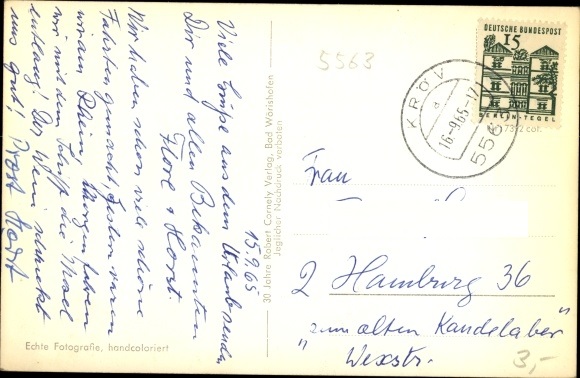 15.9.65
Viele Grüße aus dem Urlaub senden
Dir und allen Bekannten
Horst
Wir haben schon viele schöne
Fahrten gemacht, gestern waren
wir am Rhein, Morgen fahren
wir mit dem Schiff die Mosel
entlang! Der Wein schmeckt
uns gut! Prost Horst
Echte Fotografie, handcoloriert
30 Jahre Robert Cornely Verlag, Bad Wörishofen
Jeglicher Nachdruck verboten
5563
KRÖV
a
16-9.65-17
DEUTSCHE BUNDESPOST
15
BERLIN-TEGEL
7312 col.
Frau
2 Hamburg 36
"zum alten Kandelaber"
Wexstr.
3,-